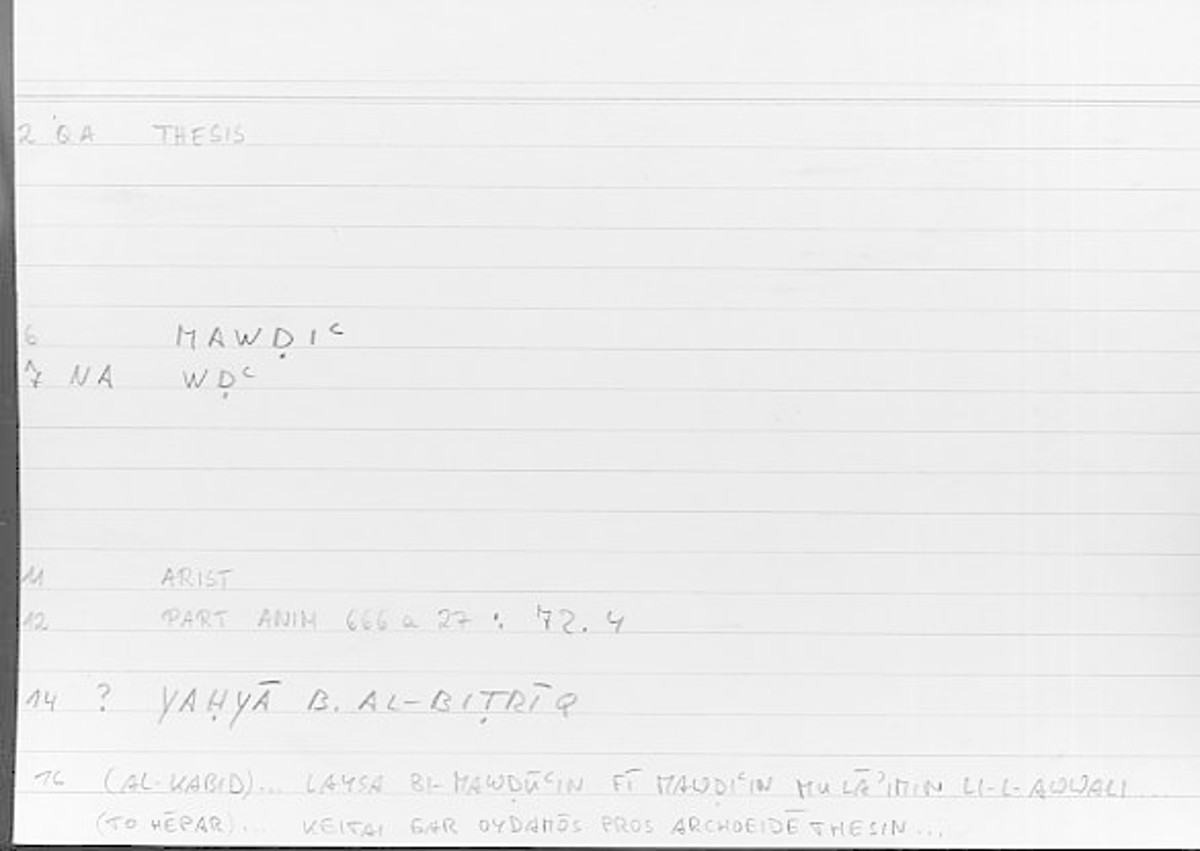 2 QA THESIS
6 MAWḌIʿ
7 NA WḌʿ
11 ARIST
12 PART ANIM 666 a 27 : 72.4
14 ? YAḤYĀ B. AL-BIṬRĪQ
16 (AL-KABID)... LAYSA BI-MAWḌŪʿIN FĪ MAWḌIʿIN MULĀʾIMIN LI-L-AWWALI...
(TO HĒPAR)... KEITAI GAR OYDAMŌS PROS ARCHOEIDĒ THESIN...